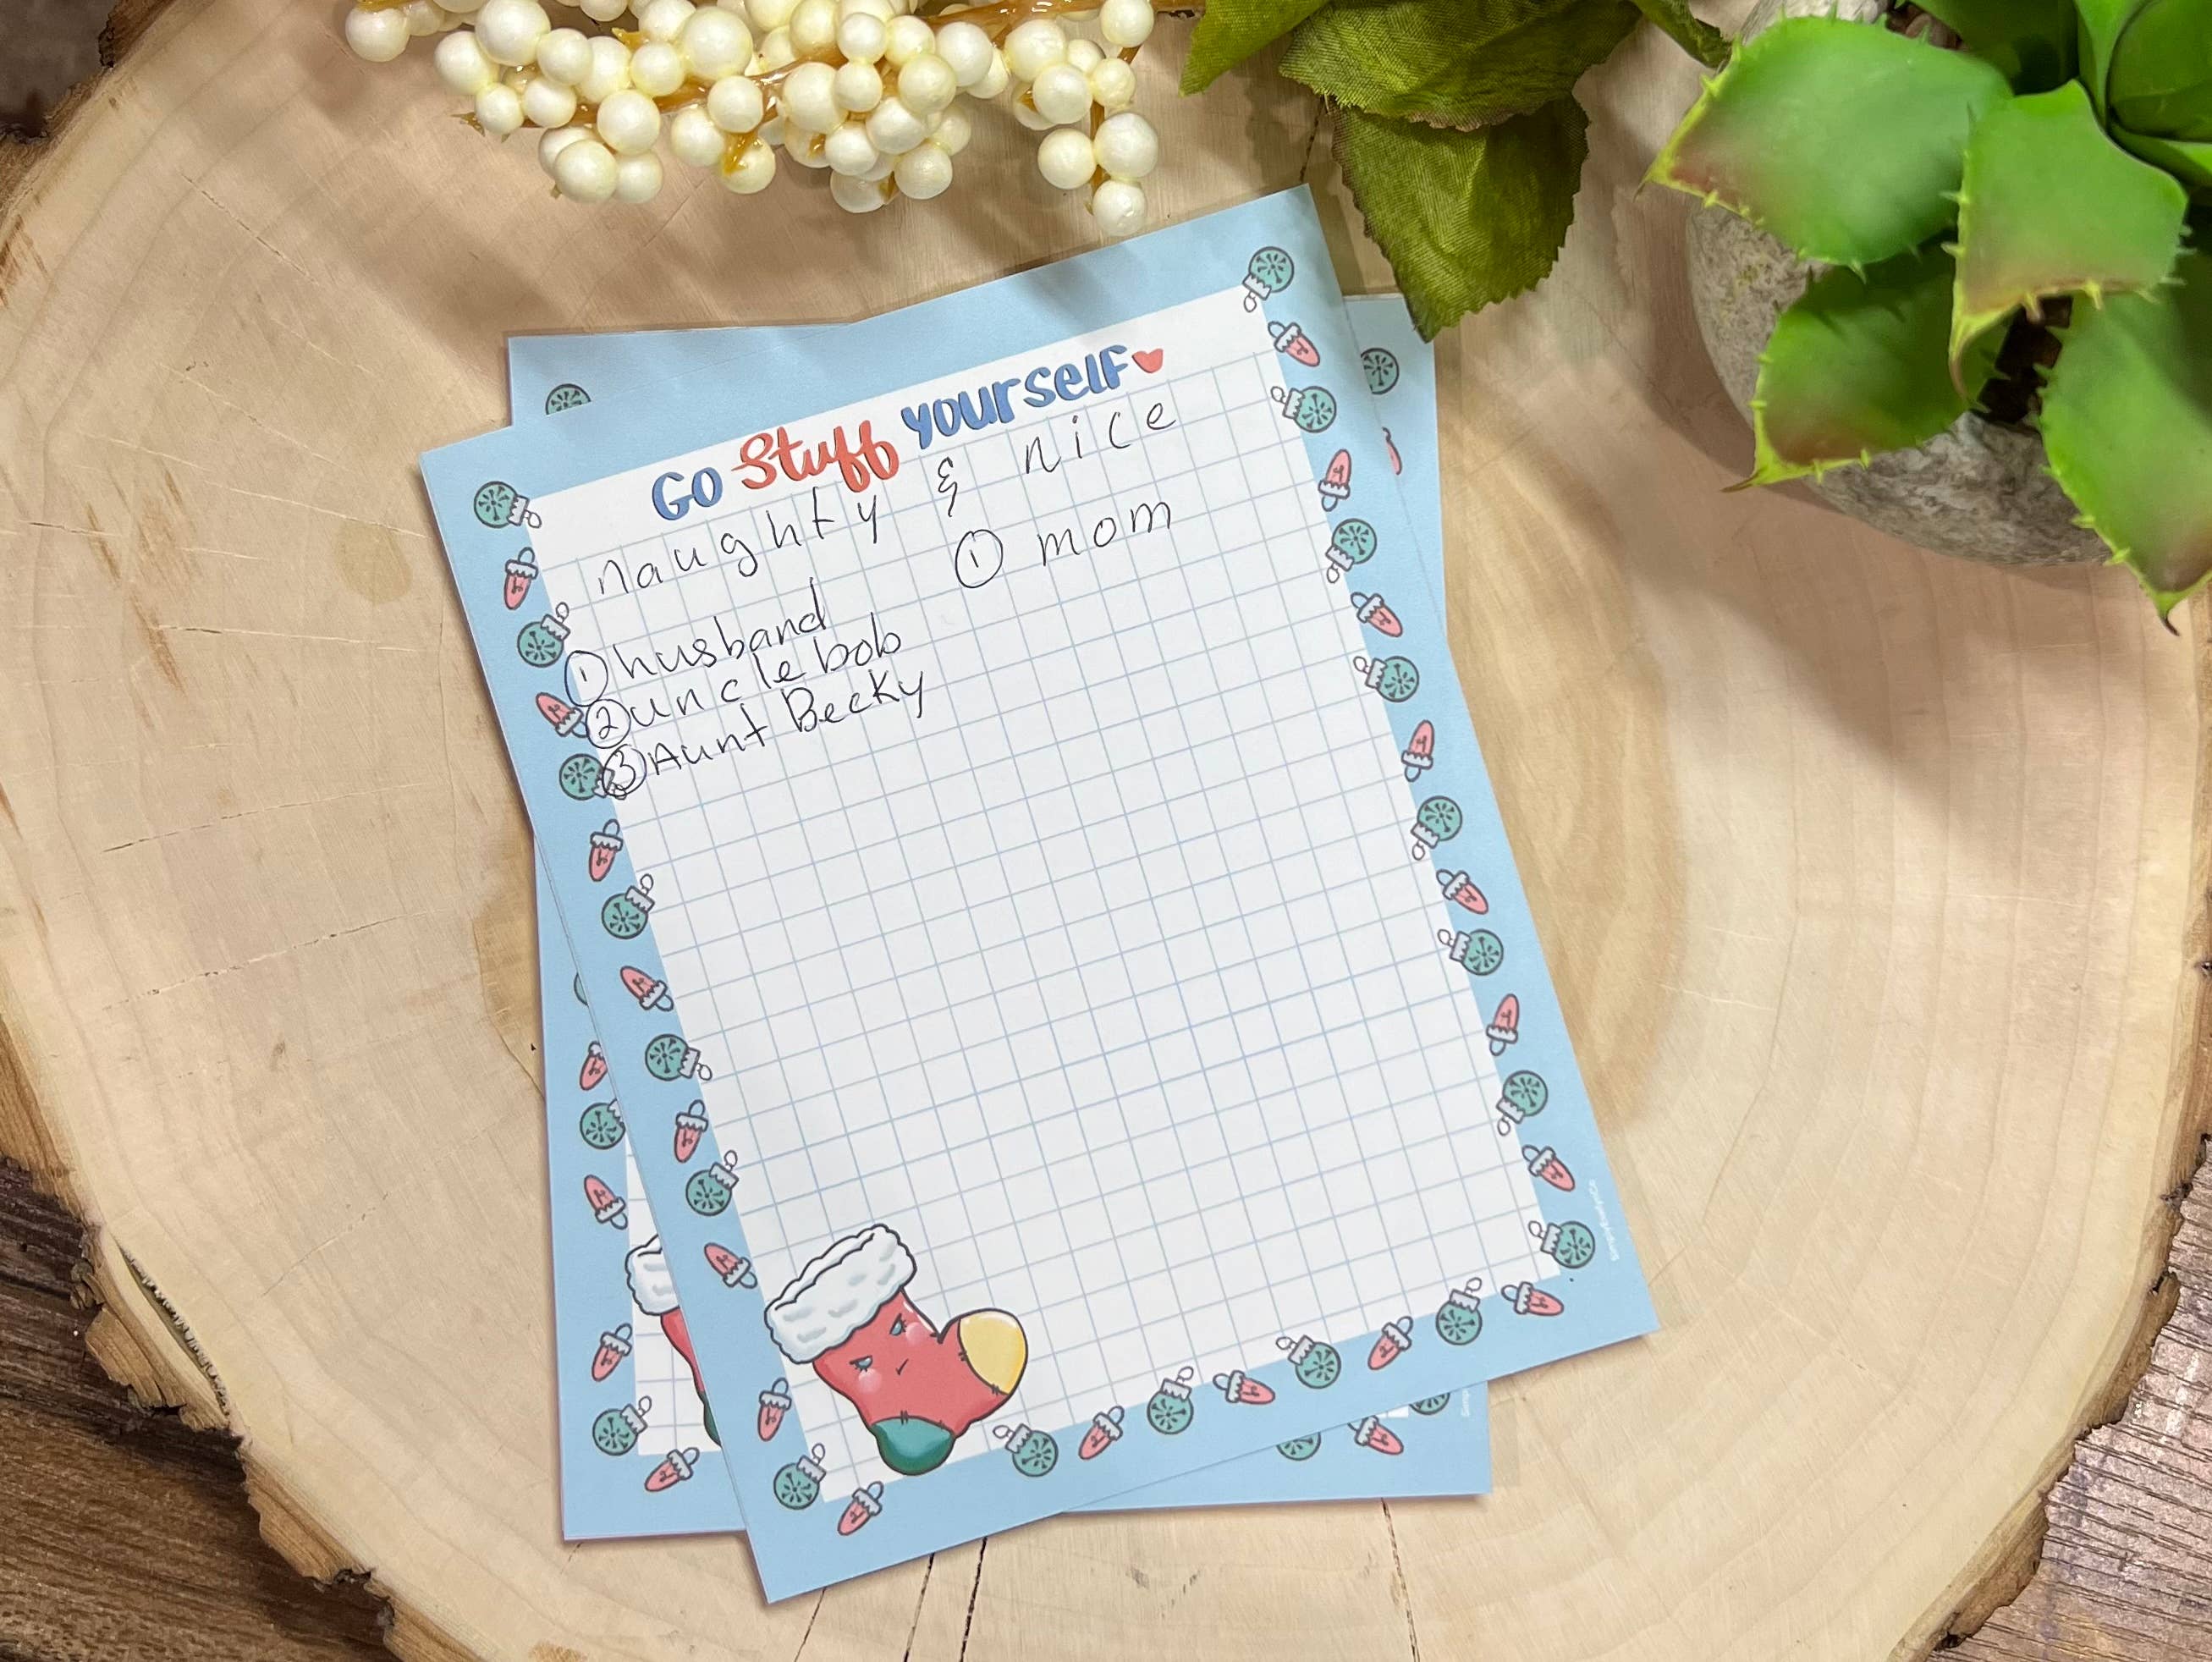 Go Stuff yourself
naughty & nice
① mom
① husband
② uncle bob
③ Aunt Becky